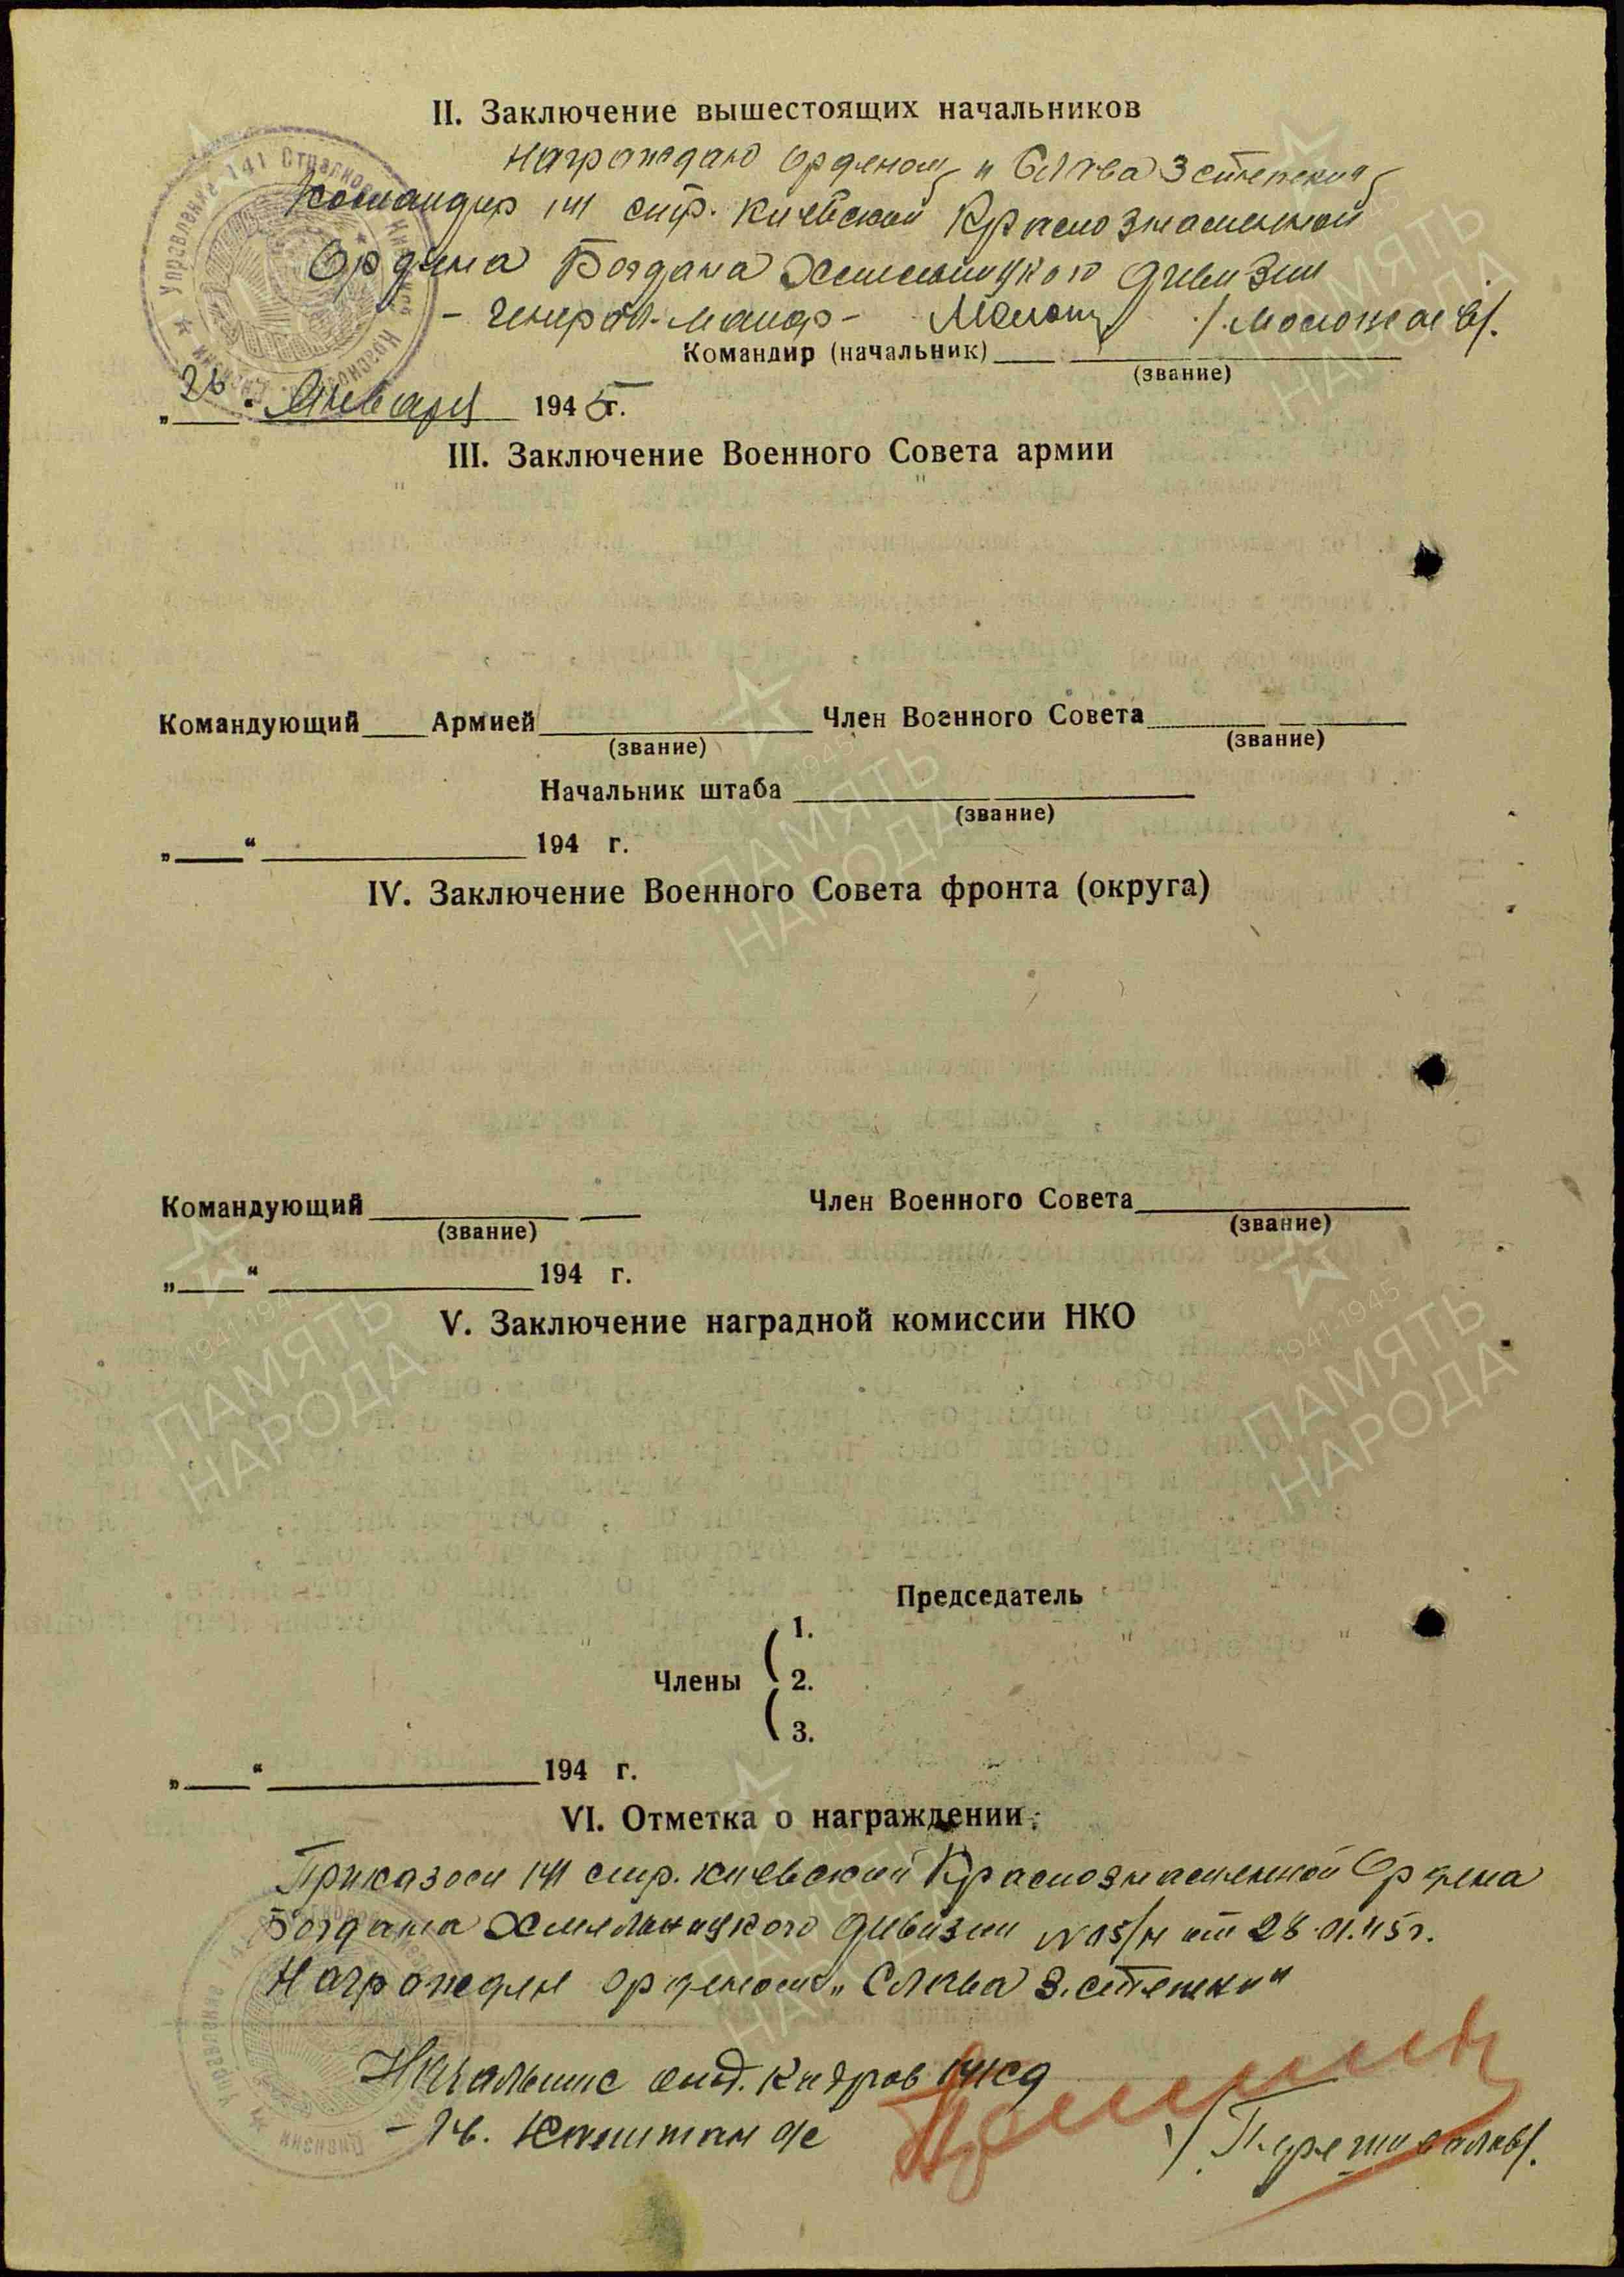 II. Заключение вышестоящих начальников
Награждаю орденом „Слава 3 степени“
Командир 141 стр. Киевской Краснознаменной
Ордена Богдана Хмельницкого дивизии
- Генерал-майор - /Моложаев/.
Командир (начальник)
(звание)
„28“ Января 1945 г.
III. Заключение Военного Совета армии
Командующий Армией Член Военного Совета
(звание) (звание)
Начальник штаба
(звание)
„ “ 194 г.
IV. Заключение Военного Совета фронта (округа)
Командующий Член Военного Совета
(звание) (звание)
„ “ 194 г.
V. Заключение наградной комиссии НКО
Председатель
1.
Члены 2.
3.
„ “ 194 г.
VI. Отметка о награждении:
Приказом 141 стр. Киевской Краснознаменной Ордена
Богдана Хмельницкого дивизии от 28.01.45 г.
Награжден орденом „Слава 3. степени“
Начальник отд. кадров 141 сд
- Гв. Капитан а/с
ПАМЯТЬ
НАРОДА
1941-1945